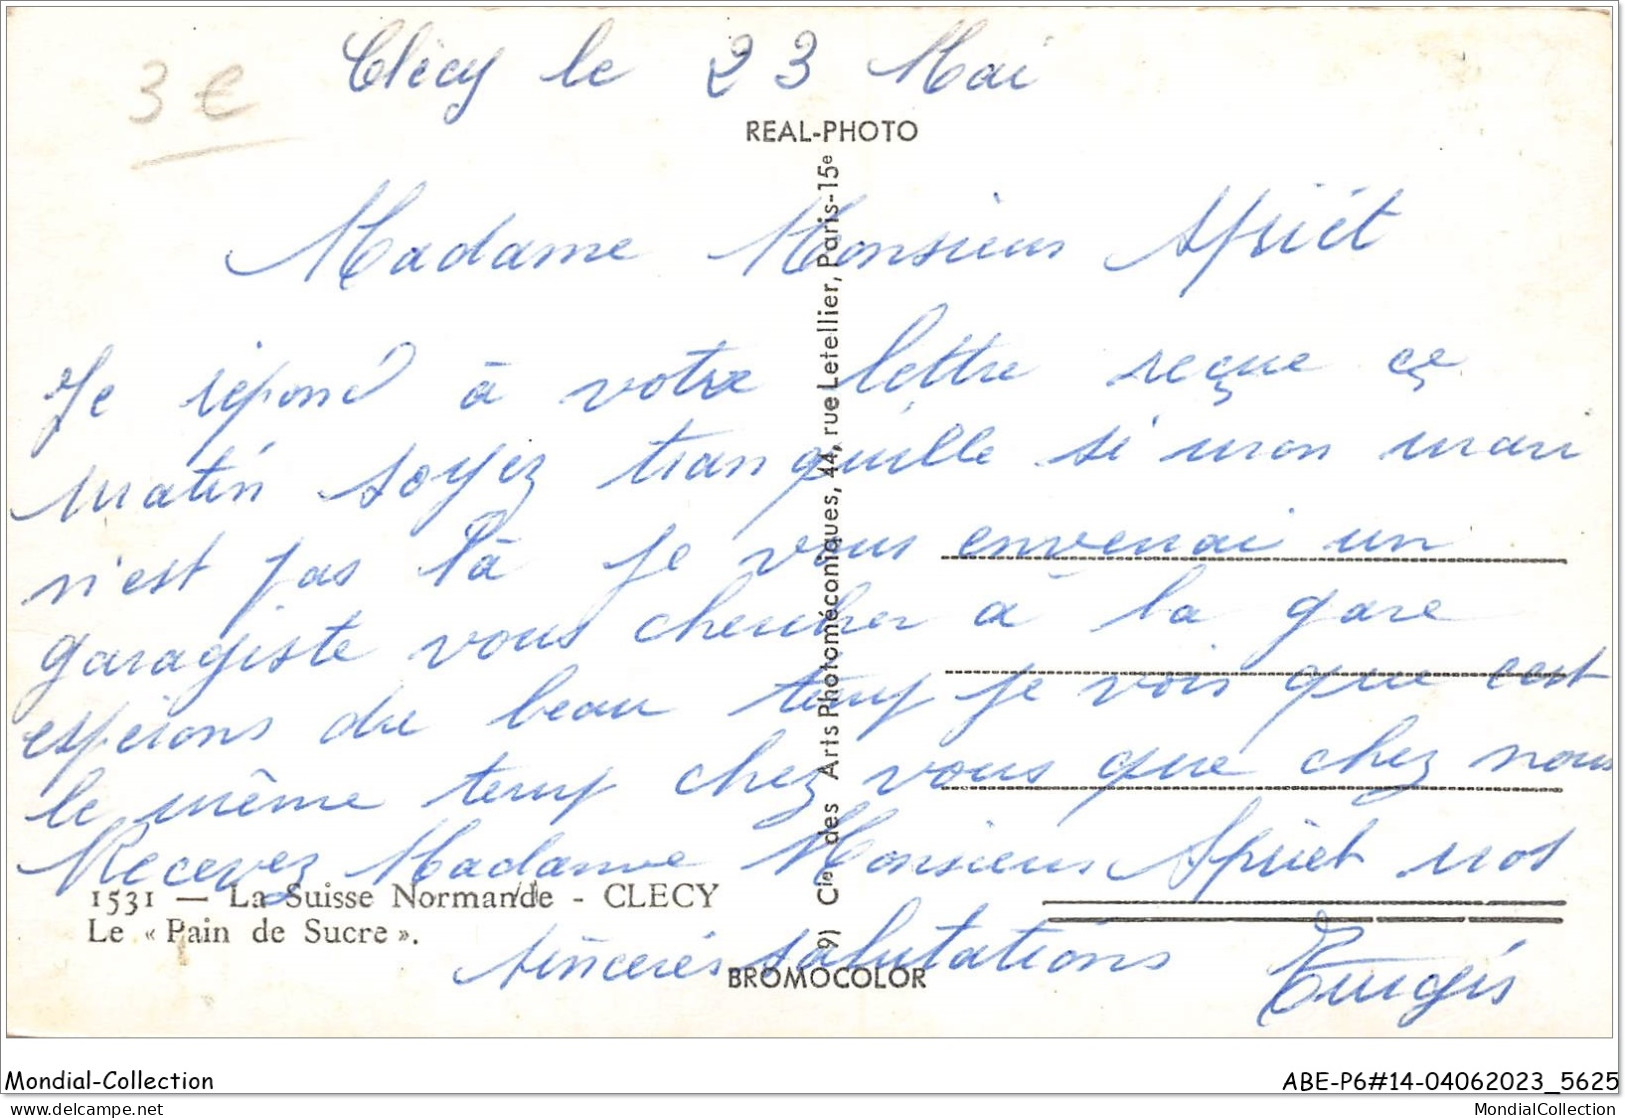 3 €
Clécy le 23 Mai
REAL-PHOTO
Madame Monsieur Apriet
Je répond à votre lettre reçue ce
matin soyez tranquille si mon mari
n'est pas là je vous enverrai un
garagiste vous chercher à la gare
espérons du beau temp je vois que cest
le même temp chez vous que chez nous
Recevez Madame Monsieur Apriet nos
sincères salutations Turgis
1531 — La Suisse Normande - CLECY
Le « Pain de Sucre ».
9) Cie des Arts Photomécaniques, 44, rue Letellier, Paris-15e
BROMOCOLOR
Mondial-Collection
ABE-P6#14-04062023_5625
delcampe.net
MondialCollection